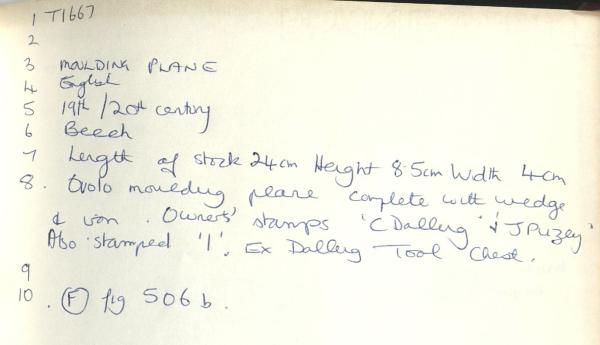 1 T1667
2
3 MOULDING PLANE
4 English
5 19th / 20th century
6 Beech
7 Length of stock 24cm Height 8.5cm Width 4cm
8. Ovolo moulding plane complete with wedge
& iron. Owners' stamps 'C Dalling' & 'J Puzey'
Also stamped '1'. Ex Dalling Tool Chest.
9
10. (F) fig 506 b.